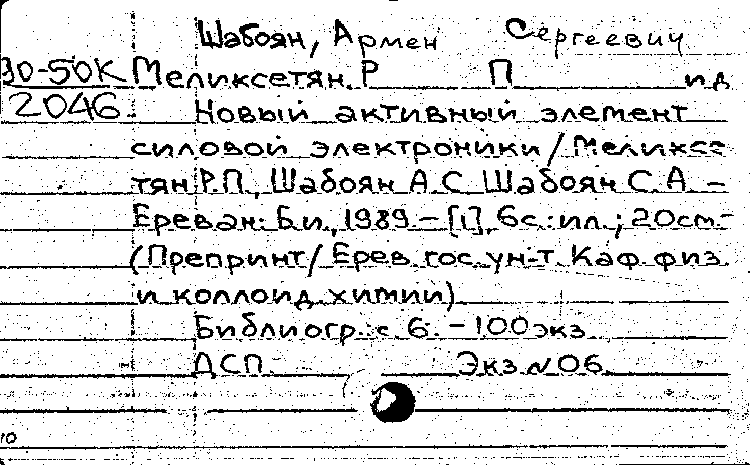 Шабоян, Армен Сергеевич
90-50К Меликсетян Р П и д
2046 Новый активный элемент
силовой электроники / Меликсе=
тян Р.П., Шабоян А.С. Шабоян С.А. –
Ереван: Б.и., 1989. – [1], 6с.: ил.; 20см. –
(Препринт / Ерев. гос. ун-т. Каф. физ.
и коллоид. химии)
Библиогр.: с 6. – 100экз
ДСП. Экз №06
10